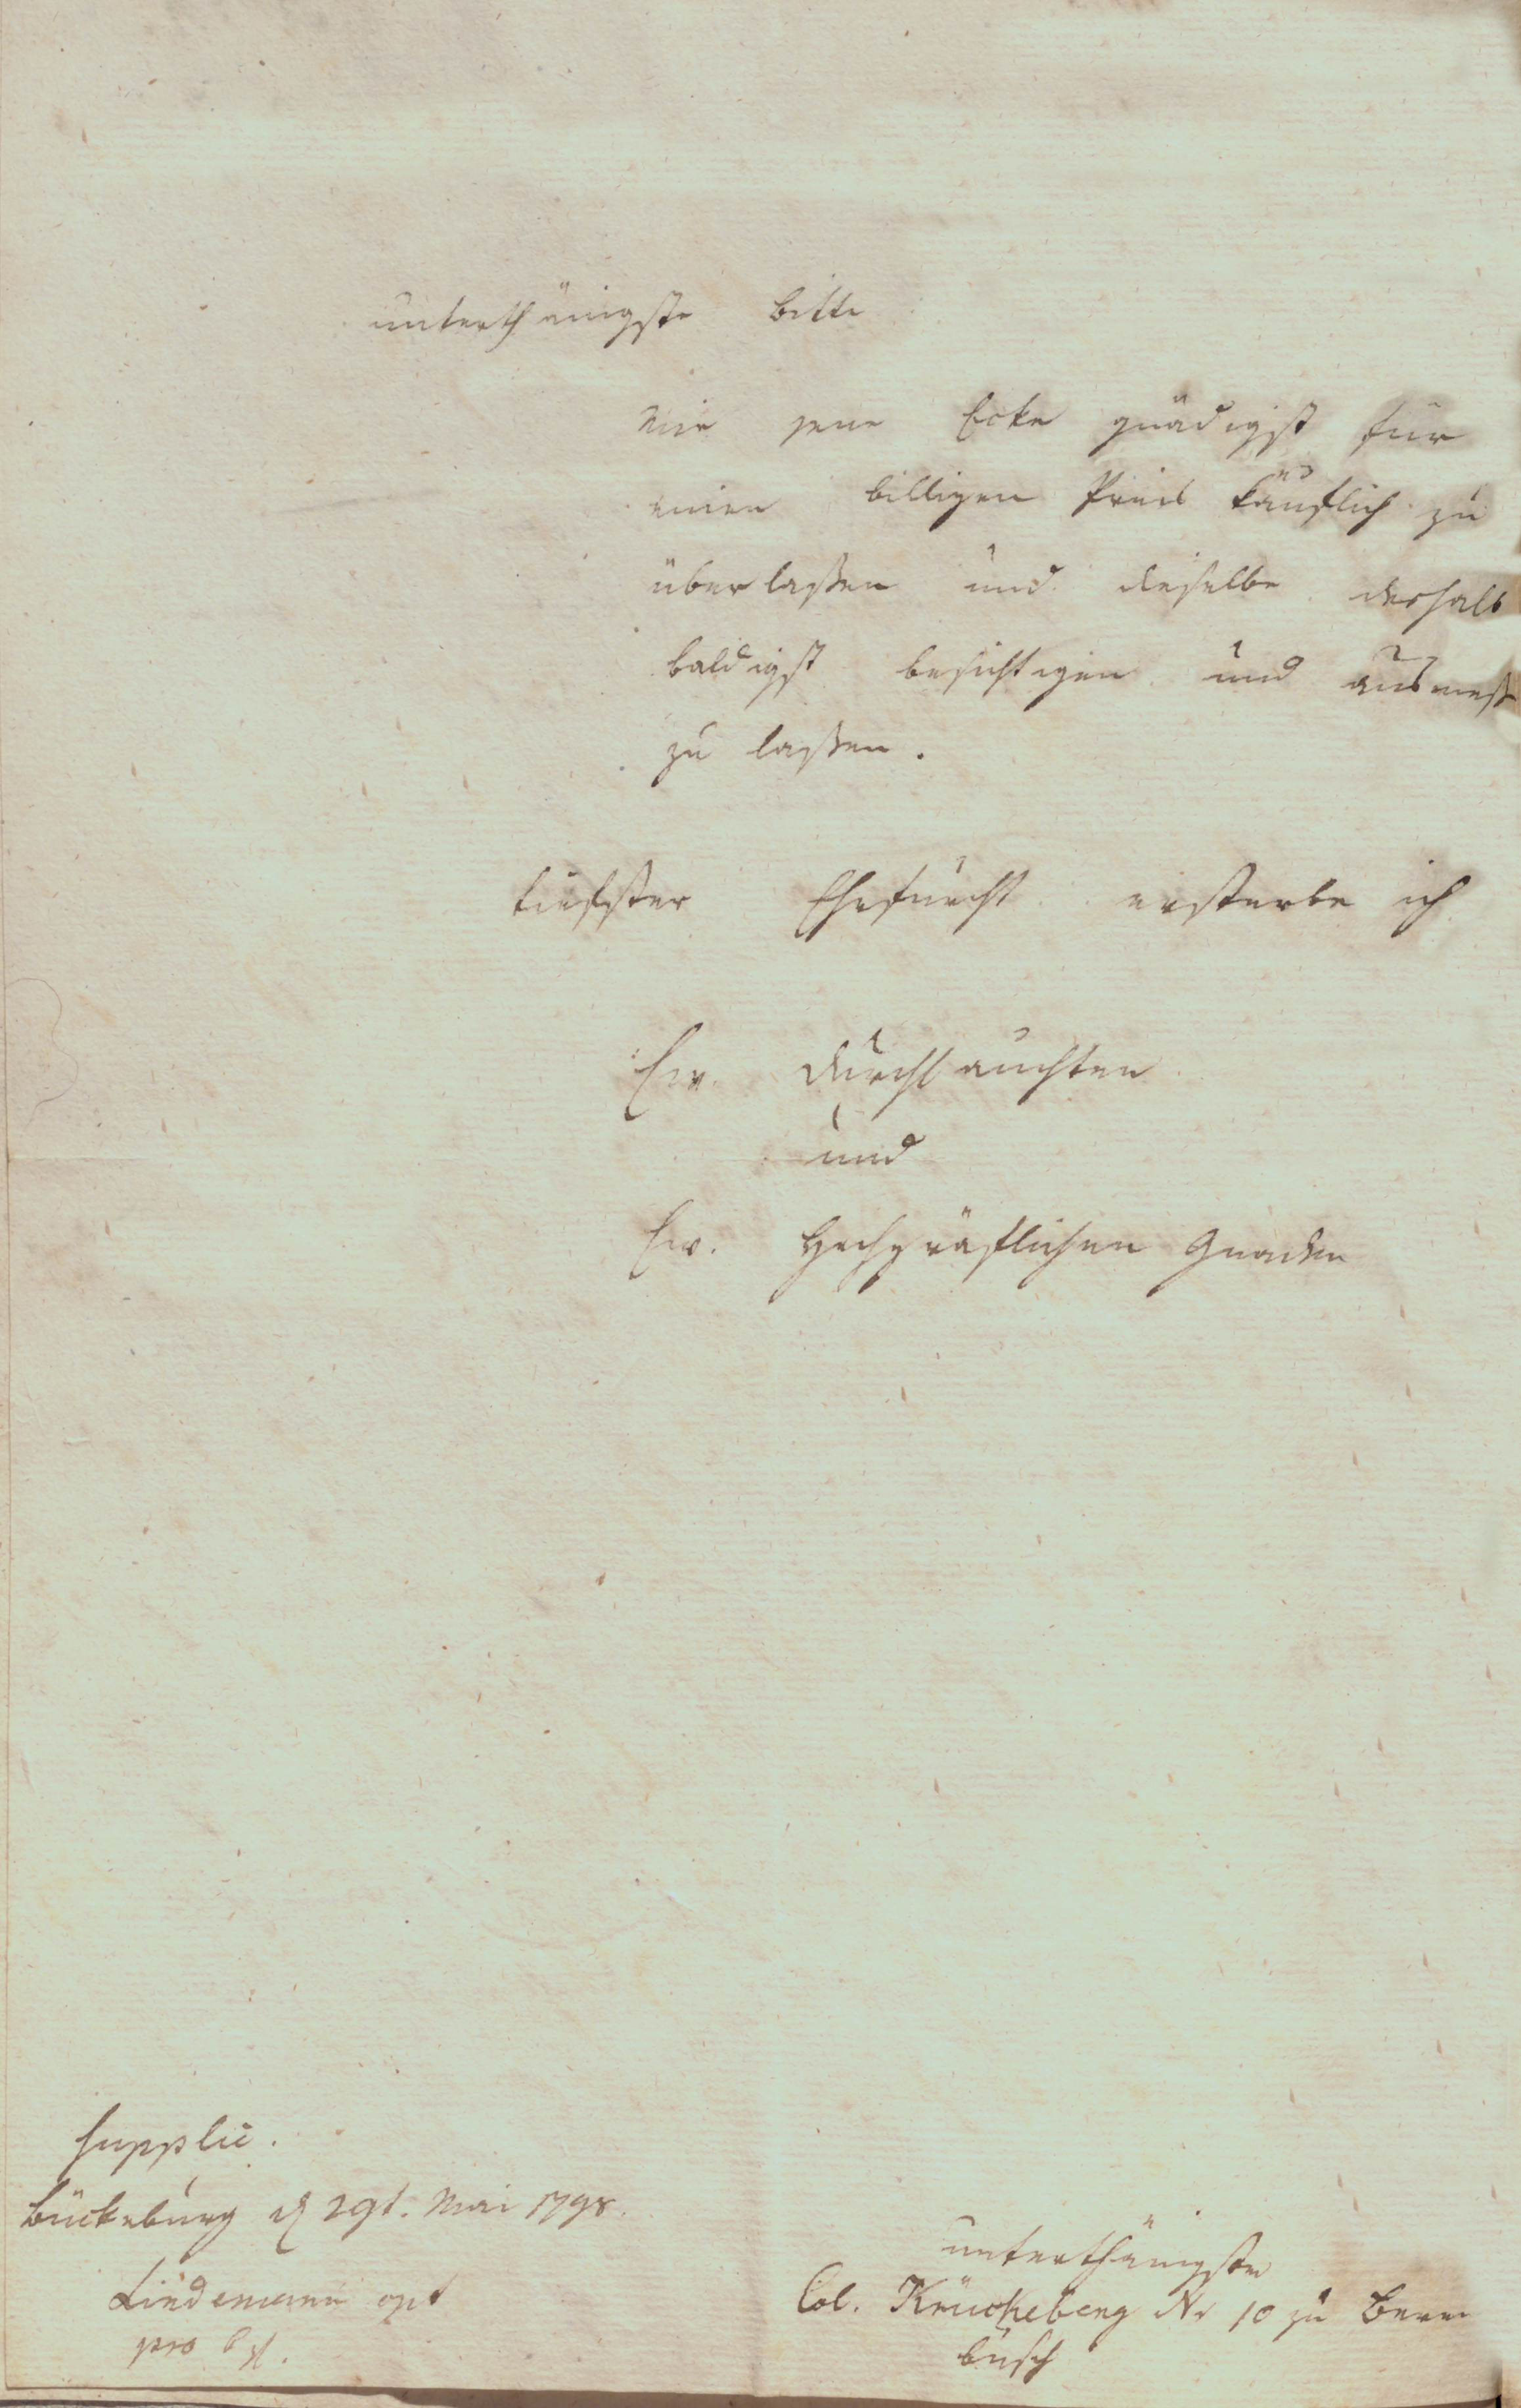 unterthänigste Bitte
mir jene Ecke gnädigst für
einen billigen Preis käuflich zu
überlaßen und dieselbe deshalb
baldigst besichtigen und ausmeß
zu laßen.
tiefster Ehrfurcht ersterbe ich
Ew. Durchlauchten
und
Ew. Hochgräflichen Gnaden
Supplic.
Bückeburg d 29t. Mai 1798.
Lindemann
pro
unterthänigster
Col. Krückeberg Nr 10 zu Beren
busch